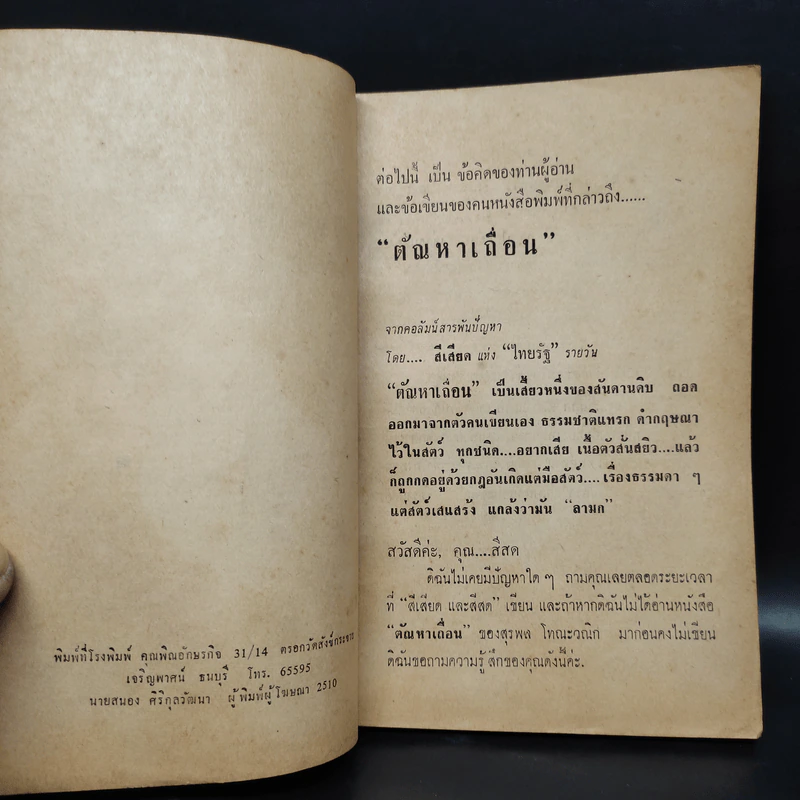 พิมพ์ที่โรงพิมพ์ คุณพิณอักษรกิจ 31/14 ตรอกวัดสังข์กระจาย
เจริญพาศน์ ธนบุรี โทร. 65595
นายสนอง ศิริกุลวัฒนา ผู้พิมพ์ผู้โฆษณา 2510
ต่อไปนี้ เป็น ข้อคิดของท่านผู้อ่าน
และข้อเขียนของคนหนังสือพิมพ์ที่กล่าวถึง......
“ตัณหาเถื่อน”
จากคอลัมน์สารพันปัญหา
โดย.... สีเสียด แห่ง “ไทยรัฐ” รายวัน
“ตัณหาเถื่อน” เป็นเสี้ยวหนึ่งของสันดานดิบ ถอด
ออกมาจากตัวคนเขียนเอง ธรรมชาติแทรก ดำกฤษณา
ไว้ในสัตว์ ทุกชนิด....อยากเสีย เนื้อตัวสั่นสยิว....แล้ว
ก็ถูกกดอยู่ด้วยกฎอันเกิดแต่มือสัตว์....เรื่องธรรมดา ๆ
แต่สัตว์เสแสร้ง แกล้งว่ามัน “ลามก”
สวัสดีค่ะ, คุณ....สีสด
ดิฉันไม่เคยมีปัญหาใด ๆ ถามคุณเลยตลอดระยะเวลา
ที่ “สีเสียด และสีสด” เขียน และถ้าหากดิฉันไม่ได้อ่านหนังสือ
“ตัณหาเถื่อน” ของสุรพล โทณะวณิก มาก่อนคงไม่เขียน
ดิฉันขอถามความรู้สึกของคุณดังนี้ค่ะ.